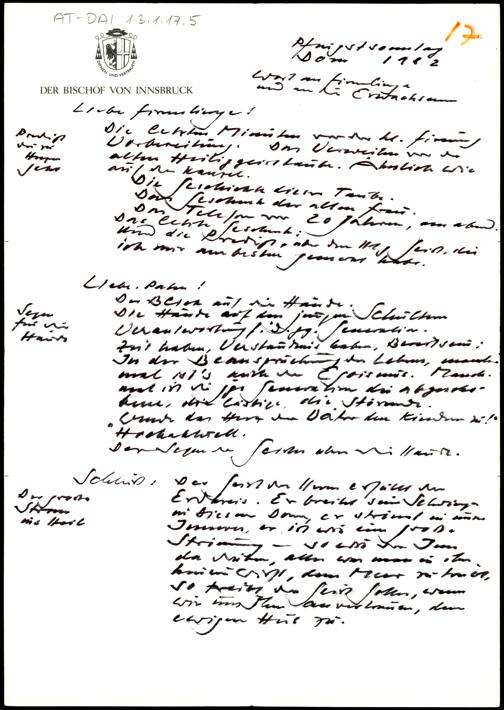 AT-DAI 1.3.1.17.5
12
DIENEN UND VERTRAUEN
DER BISCHOF VON INNSBRUCK
Pfingstsonntag
Dom 1982
Wort an Firmlinge
und an die Erwachsenen
Liebe Firmlinge!
Predigt
die zu
Herzen
geht
Die letzten Minuten vor der hl. Firmung
Vorbereitung. Das Verweilen vor der
alten Heiliggeisttaube. Ähnlich wie
auf der Kanzel.
Die Geschichte dieser Taube.
Das Geschenk der alten Frau.
Das Telefon vor 20 Jahren, am Abend.
Das letzte Geschenk:
Und die Predigt über den Hlg. Geist, die
ich mir am besten gemerkt habe.
Liebe Paten!
Segen
für die
Hände
Der Blick auf die Hände.
Die Hände auf den jungen Schultern
Verantwortung f. d. jg. Generation.
Zeit haben, Verständnis haben,
In der Beanspruchung des Lebens, manch-
mal ist's auch der Egoismus. Manch-
mal ist die jge Generation die abgescho-
bene, die lästige, die störende.
"Wende das Herz der Väter den Kindern zu!"
Hochaktuell.
Der Segen des Geistes über die Hände.
Schluß:
Der große
Strom
ins Heil
Der Geist des Herrn erfüllt den
Erdkreis. Er breitet seine Schwingen
in diesem Dom, er strömt in unser
Inneres, er ist wie eine große
Strömung – so wie der Inn
da draußen, alles was man in ihn
hineinwirft, dem Meer zu treibt,
so treibt der Geist Gottes, wenn
wir uns Ihm anvertrauen, dem
ewigen Heil zu.